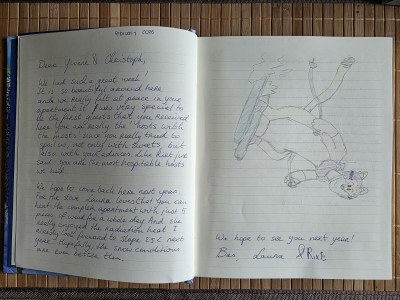 February 2018
Dear Yvonne & Christoph,
We had such a great week!
It is so beautiful around here
and we really felt at peace in your
apartment. It was very special to
be the first guests that you received
here. You are really the "hosts with
the mosts" since you really tried to
spoil us, not only with sweets, but
also with your advice. Like Rick just
said: you are the most hospitable hosts
we had.
We hope to come back here next year.
For the zone, Laura loves that you can
heat the complete apartment with just 5
pieces of wood for a whole day. And she
really enjoyed the radiation heat. I
already look forward to slope 25 C next
year. Hopefully the snow conditions
are even better then.
We hope to see you next year!
Bas, Laura & Rick